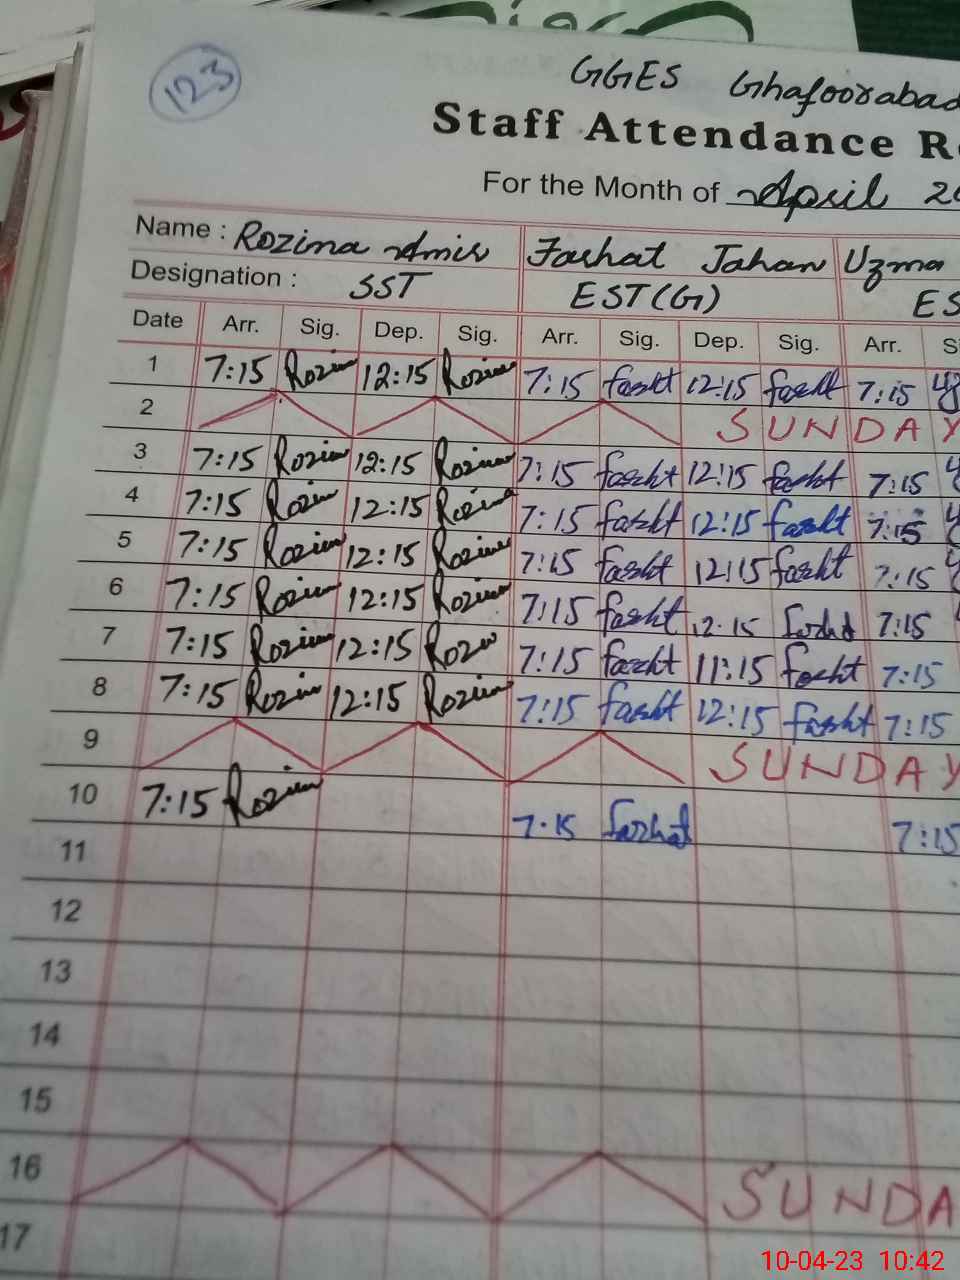 123
GGES Ghafoorabad
Staff Attendance Re
For the Month of April 20
Name : Rozina Amir Farhat Jahan Uzma
Designation : SST EST(G) ES
Date Arr. Sig. Dep. Sig. Arr. Sig. Dep. Sig. Arr. S
1 7:15 Rozina 12:15 Rozina 7:15 farht 12:15 farht 7:15
2 SUNDAY
3 7:15 Rozina 12:15 Rozina 7:15 farht 12:15 farht 7:15
4 7:15 Rozina 12:15 Rozina 7:15 farht 12:15 farht 7:15
5 7:15 Rozina 12:15 Rozina 7:15 farht 12:15 farht 7:15
6 7:15 Rozina 12:15 Rozina 7:15 farht 12:15 farht 7:15
7 7:15 Rozina 12:15 Rozina 7:15 farht 11:15 farht 7:15
8 7:15 Rozina 12:15 Rozina 7:15 farht 12:15 farht 7:15
9 SUNDAY
10 7:15 Rozina 7:15 farhat 7:15
11
12
13
14
15
16 SUNDA
17
10-04-23 10:42